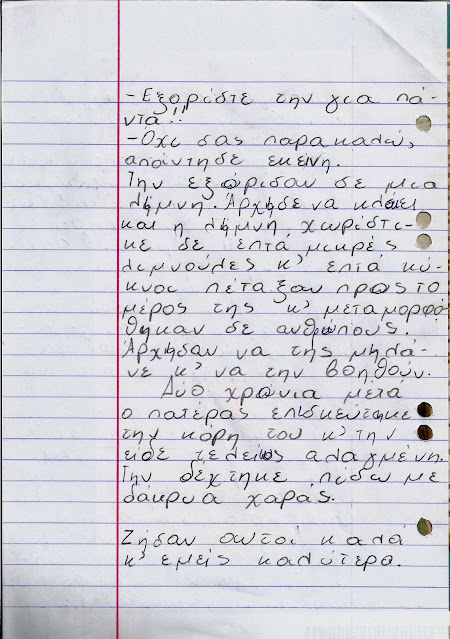 -Εξορίστε την για πά-
ντα!!
-Όχι σας παρακαλώ,
απάντησε εκείνη.
Την εξόρισαν σε μια
λίμνη. Άρχησε να κλαίει
και η λίμνη χωρίστι-
κε σε επτά μικρές
λιμνούλες κ' επτά κύ-
κνοι πέταξαν προς το
μέρος της κ' μεταμορφώ-
θηκαν σε ανθρώπους!
Άρχησαν να της μηλά-
νε κ' να την βοηθούν.
Δύο χρόνια μετά
ο πατέρας επισκεύτηκε
την κόρη του κ' την
είδε τελείως αλαγμένη.
Την δέχτηκε πίσω με
δάκρυα χαράς.
Ζήσαν αυτοί καλά
κ' εμείς καλύτερα.